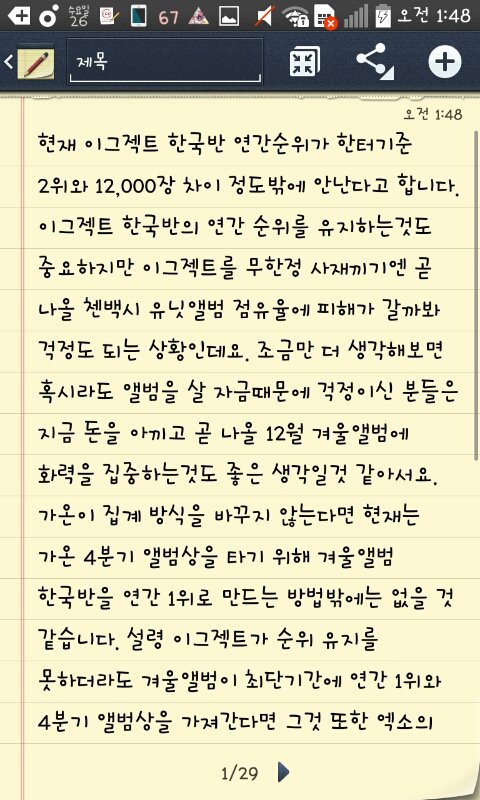 수요일
26
67
오전 1:48
제목
오전 1:48
현재 이그젝트 한국반 연간순위가 한터기준
2위와 12,000장 차이 정도밖에 안난다고 합니다.
이그젝트 한국반의 연간 순위를 유지하는것도
중요하지만 이그젝트를 무한정 사재끼기엔 곧
나올 첸백시 유닛앨범 점유율에 피해가 갈까봐
걱정도 되는 상황인데요. 조금만 더 생각해보면
혹시라도 앨범을 살 자금때문에 걱정이신 분들은
지금 돈을 아끼고 곧 나올 12월 겨울앨범에
화력을 집중하는것도 좋은 생각일것 같아서요.
가온이 집계 방식을 바꾸지 않는다면 현재는
가온 4분기 앨범상을 타기 위해 겨울앨범
한국반을 연간 1위로 만드는 방법밖에는 없을 것
같습니다. 설령 이그젝트가 순위 유지를
못하더라도 겨울앨범이 최단기간에 연간 1위와
4분기 앨범상을 가져간다면 그것 또한 엑소의
1/29